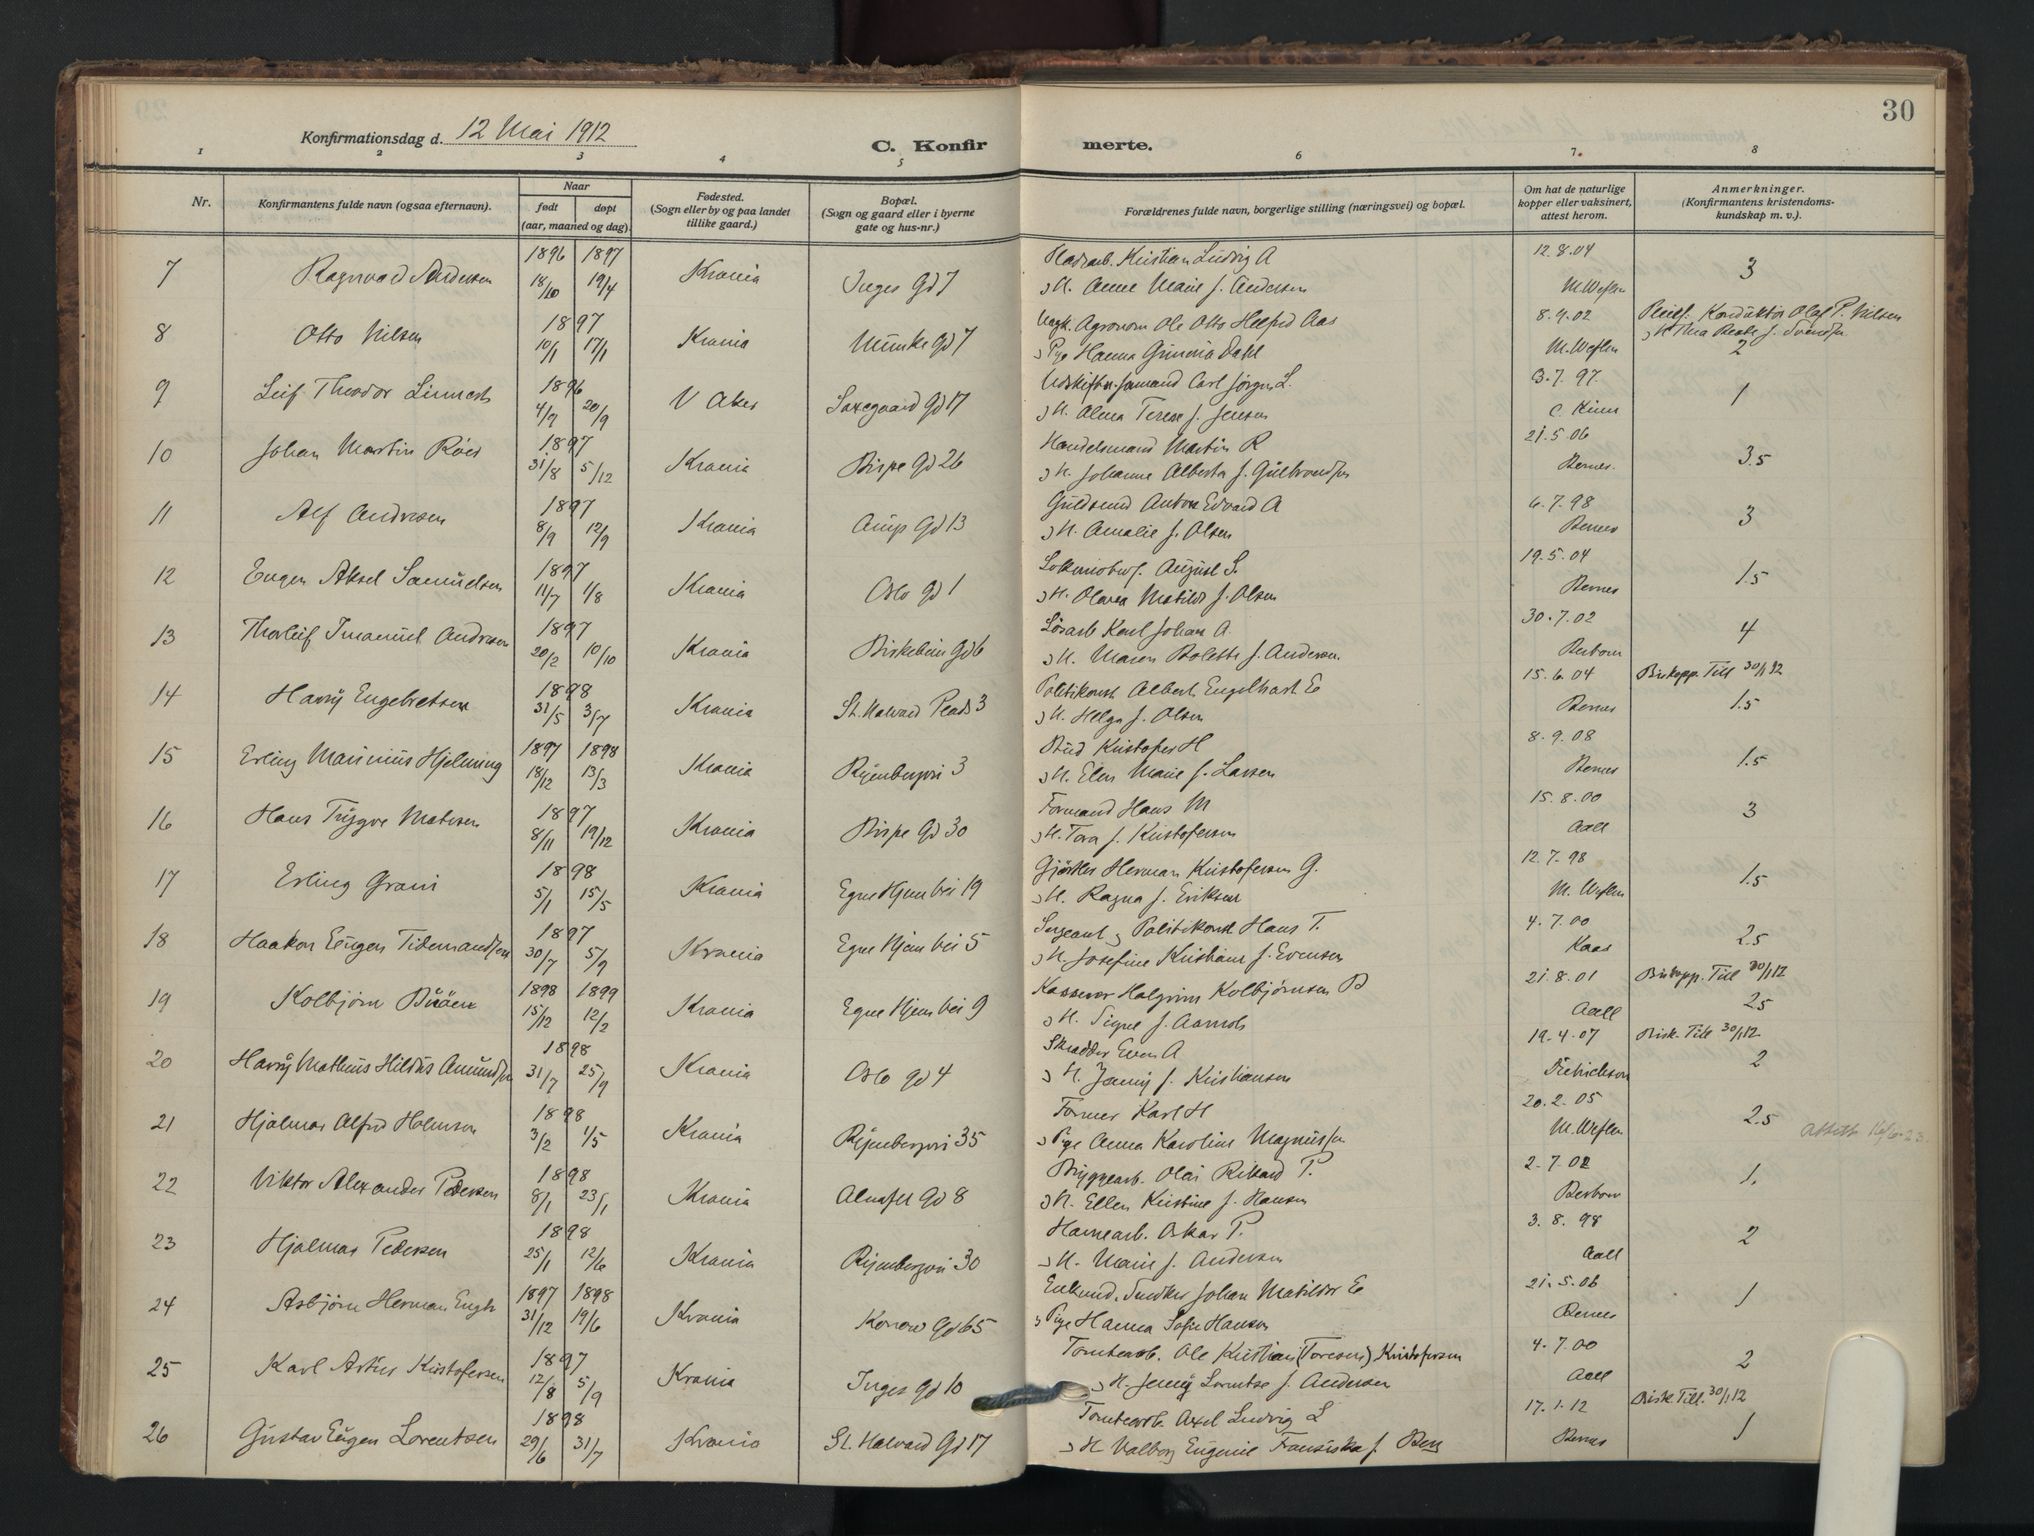 Konfirmationsdag d. 12 Mai 1912
C. Konfirmerte.
30
1 2 3 4 5 6 7. 8
Nr.
Konfirmantens fulde navn (ogsaa efternavn).
Naar
født døpt
(aar, maaned og dag).
Fødested.
(Sogn eller by og paa landet
tillike gaard.)
Bopæl.
(Sogn og gaard eller i byerne
gate og hus-nr.)
Forældrenes fulde navn, borgerlige stilling (næringsvei) og bopæl.
Om hat de naturlige
kopper eller vaksinert,
attest herom.
Anmerkninger.
(Konfirmantens kristendoms-
kundskap m. v.).
1896 1897 12.8.04
7 Ragnvald Andersen 18/10 19/4 Krania Inges Gd 7 Kristian Ludvig A 3
H. Anne Marie f. Andersen M. Weflen
1897 Agronom Ole Otto Aas 8.9.02 Pleief. Konduktør Olaf P. Nilsen
8 Otto Nilsen 10/1 17/1 Krania Munke Gd 7 Pige Hanna Guneria Dahl M. Weflen 2
1896 Carl Jørgen L. 3.7.97.
9 Leif Theodor 4/9 20/9 V Aker Saxegaard Gd 17 H. Alma Terese f. Jensen 1
1897 Handelsmand Martin R 21.5.06
10 Johan Martin Røed 31/8 5/12 Krania Bispe Gd 26 H. Johanne Alberta f. Gulbrandsen Bernes. 3.5
1897 Guldsmed Anton Edvard A 6.7.98
11 Alf Andresen 8/9 12/9 Krania Amp Gd 13 H. Amalie f. Olsen Bernes 3
1897 August S. 19.5.04
12 Eugen Aksel Samuelsen 11/7 1/8 Krania Oslo Gd 1 H. Olava Matilde f. Olsen Bernes 1.5
1897 Løsarb Karl Johan A. 30.7.02
13 Thorleif Imanuel Andresen 20/2 10/10 Krania Birkebein Gd 6 H. Maren Bolette f. Andersen. 4
1898 Politikonst Albert Engelhart E 15.6.04 Biskopp. Till 30/1 12
14 Harry Engebretsen 31/5 3/7 Krania St. Halvard Plads 3 H. Helga f. Olsen Bernes 1.5
1897 1898 Bud Kristofer H 8.9.08
15 Erling Marinius Hjelming 18/12 13/3 Krania Ryenbergvei 3 H. Elen Marie f. Larsen Bernes 1.5
1897 Formand Hans M 15.8.00
16 Hans Trygve Matesen 8/11 19/12 Krania Bispe Gd 30 H. Tora f. Kristofersen Aall 3
1898 Gjørtler Herman Kristofersen G. 12.7.98
17 Erling Grani 5/1 15/5 Krania Egne Hjem vei 19 H. Ragna f. Eriksen M. Weflen 1.5
1897 Sergeant & Politikonst Hans T. 4.7.00
18 Haakon Eugen Tidemandsen 30/7 5/9 Krania Egne Hjem vei 5 H. Josefine Kristiane f. Evensen Kaas 2.5
1898 1899 Kasserer Halgrim Kolbjørnsen B 21.8.01 Biskopp. Till 30/1 12
19 Kolbjørn Buøen 15/12 12/2 Krania Egne Hjem vei 9 H. Signe f. Aamodt Aall 2.5
1898 Skrædder Even A 19.4.07 Bisk. Till 30/1 12
20 Harry Mathius Hildus Amundsen 31/7 25/9 Krania Oslo gd 4 H. Jenny f. Kristiansen Diedrichson 2
1898 Former Karl H 20.2.05
21 Hjalmar Alfred Holmsen 3/2 1/5 Krania Ryenbergvei 35 Pige Anna Karoline Magnussen M. Weflen 2.5
1898 Bryggearb. Olai Rikard P. 2.7.02
22 Viktor Alexander Pedersen 8/1 23/1 Krania Almafel Gd 8 H. Ellen Kristine f. Hansen 1.
1898 Havnearb. Oskar P. 3.8.98
23 Hjalmar Pedersen 25/1 12/6 Krania Ryenbergvei 30 H. Marie f. Andersen Aall 2
1897 1898 Johan Matildor E 21.5.06
24 Asbjørn Herman Engh 31/12 19/6 Krania Konow Gd 65 Pige Hanna Sofie Hansen Bernes 1
1897 Tomtearb. Ole Kristian (Toresen) Kristofersen 4.7.00
25 Karl Artur Kristofersen 12/8 5/9 Krania Inges Gd 10 H. Jenny Lorentse f. Andersen Aall 2
1898 Tomtearb. Axel Ludvig L 17.1.12 Bisk. Till. 30/1 12
26 Gustav Eugen Lorentsen 29/6 31/7 Krania St. Halvard Gd 17 H Valborg Eugenie Fransiska f. Berg Bernes 1